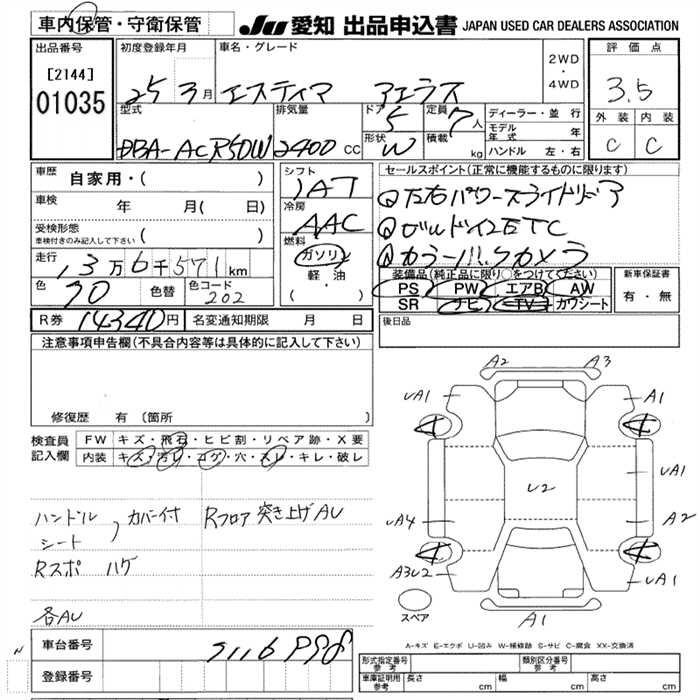 車内保管・守衛保管 JU 愛知 出品申込書 JAPAN USED CAR DEALERS ASSOCIATION
出品番号 初度登録年月 車名・グレード 2WD・4WD 評価点
[2144] 01035 25 3月 エスティマ アエラス 3.5
型式 排気量 ドア 定員 ディーラー・並行 外装 内装
DBA-ACR50W 2400cc 5 7人 モデル年式 年 C C
形状 W 積載 kg ハンドル 左・右
車歴 自家用・( ) シフト セールスポイント(正常に機能するものに限ります)
IAT
車検 年 月( 日) 冷房 AAC
①左右パワースライドドア
受検形態 車検付きのみ記入して下さい ( ) 燃料 ガソリン 軽油 ( ・ )
②ビルドインETC
走行 13万6千571km
③カラーバックカメラ
色 70 色替 色コード 202
装備品(純正品に限り○をつけてください) 新車保証書
PS PW エアB AW 有・無
SR ナビ TV カワシート
R券 14340円 名変通知期限 月 日 後日品
注意事項申告欄(不具合内容等は具体的に記入して下さい)
修復歴 有 (箇所 )
A2 A3
UA1 A1
UA1
U2
UA4 A2
A3U2 UA1
スペア A1
検査員記入欄 FW キズ・飛石・ヒビ割・リペア跡・X要
内装 キズ・汚レ・コゲ・穴・スレ・キレ・破レ
ハンドル, カバー付 Rフロア突き上げAU
シート
Rスポ ハゲ
各AU
A-キズ E-エクボ U-凹み W-補修跡 S-サビ C-腐食 XX-交換済
車台番号
登録番号
形式指定番号 参考 類別区分番号 参考
車庫証明用 参考 長さ cm 幅 cm 高さ cm